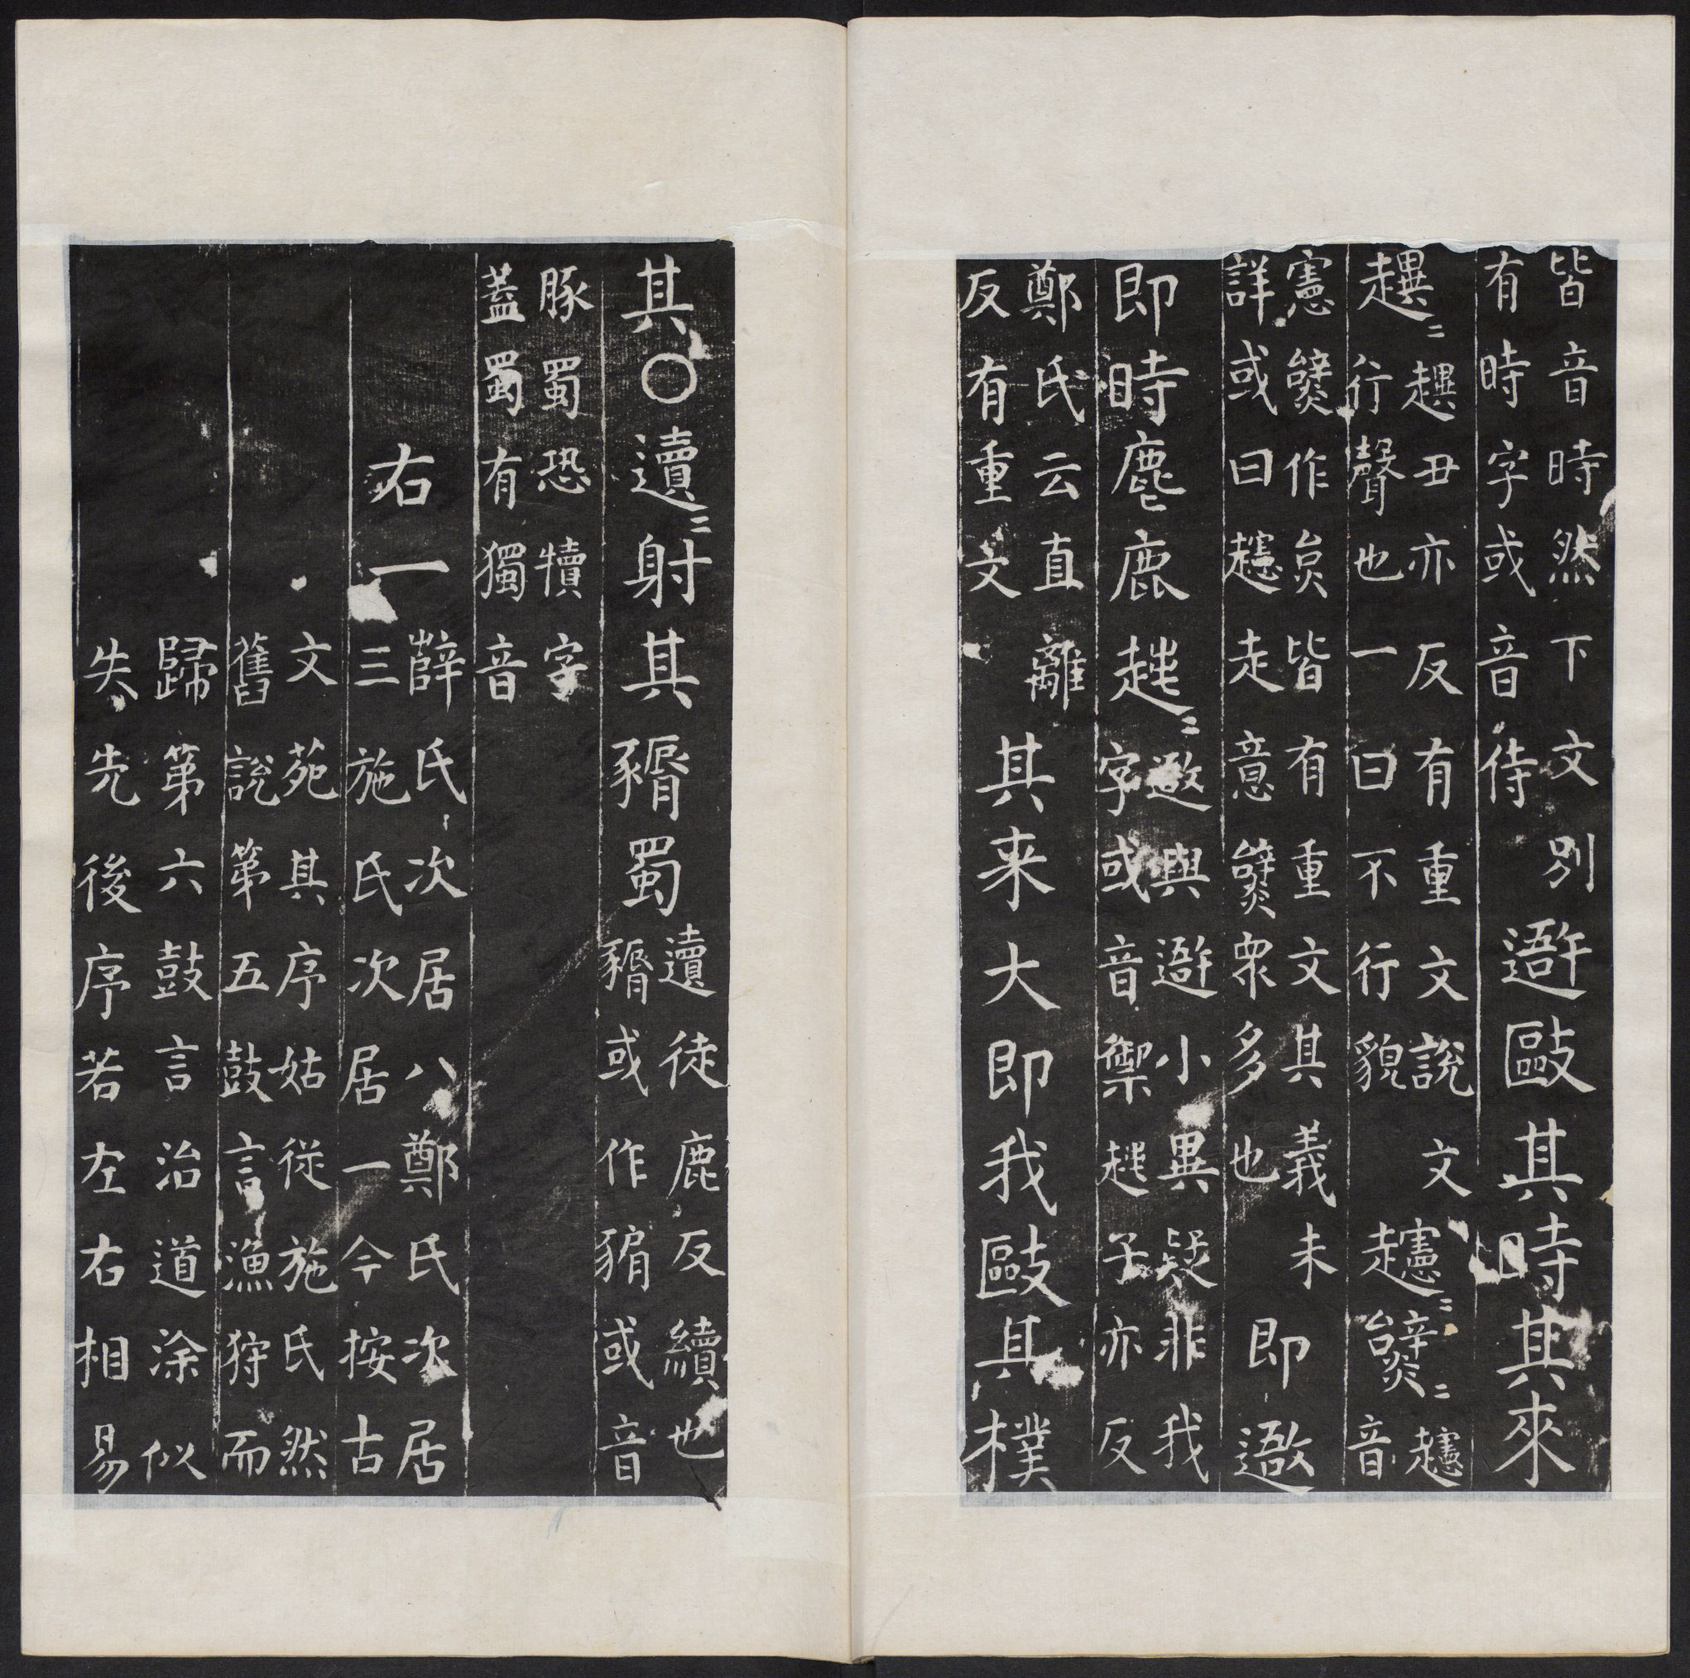 皆音時然下文別
有時字或音待
敺其時其來
趩〻
趩丑亦反有重文說文
行聲也一曰不行貌
音
憲作炱皆有重文其義未
詳或曰走意眾多也
即
即時麀鹿趚〻
與小異疑非我
字或音禦趚子亦反
鄭氏云直離
反有重文
其来大即我敺其樸
其○〻射其蜀
徒鹿反續也
或作豣或音
豚蜀恐犢字
蓋蜀有獨音
右一
薛氏次居八鄭氏次居
三施氏次居一今按古
文苑其序姑従施氏然
舊說第五鼓言漁狩而
歸第六鼓言治道涂似
失先後序若左右相易